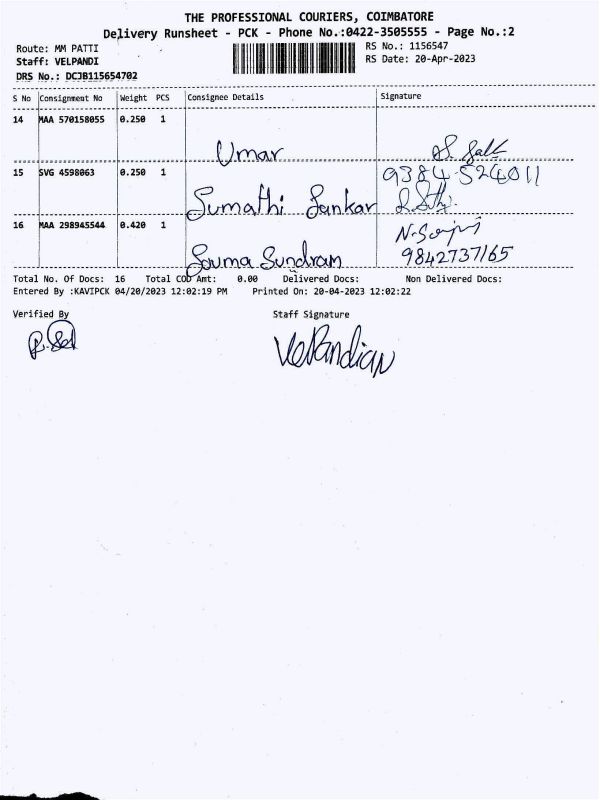 THE PROFESSIONAL COURIERS, COIMBATORE
Delivery Runsheet - PCK - Phone No.:0422-3505555 - Page No.:2
Route: MM PATTI RS No.: 1156547
Staff: VELPANDI RS Date: 20-Apr-2023
DRS No.: DCJB115654702
S No Consignment No Weight PCS Consignee Details Signature
14 MAA 570158055 0.250 1
Umar
15 SVG 4598063 0.250 1 9384524011
Sumathi Sankar
16 MAA 298945544 0.420 1
Souma Sundram 9842737165
Total No. Of Docs: 16 Total COD Amt: 0.00 Delivered Docs: Non Delivered Docs:
Entered By :KAVIPCK 04/20/2023 12:02:19 PM Printed On: 20-04-2023 12:02:22
Verified By Staff Signature
VelPandian